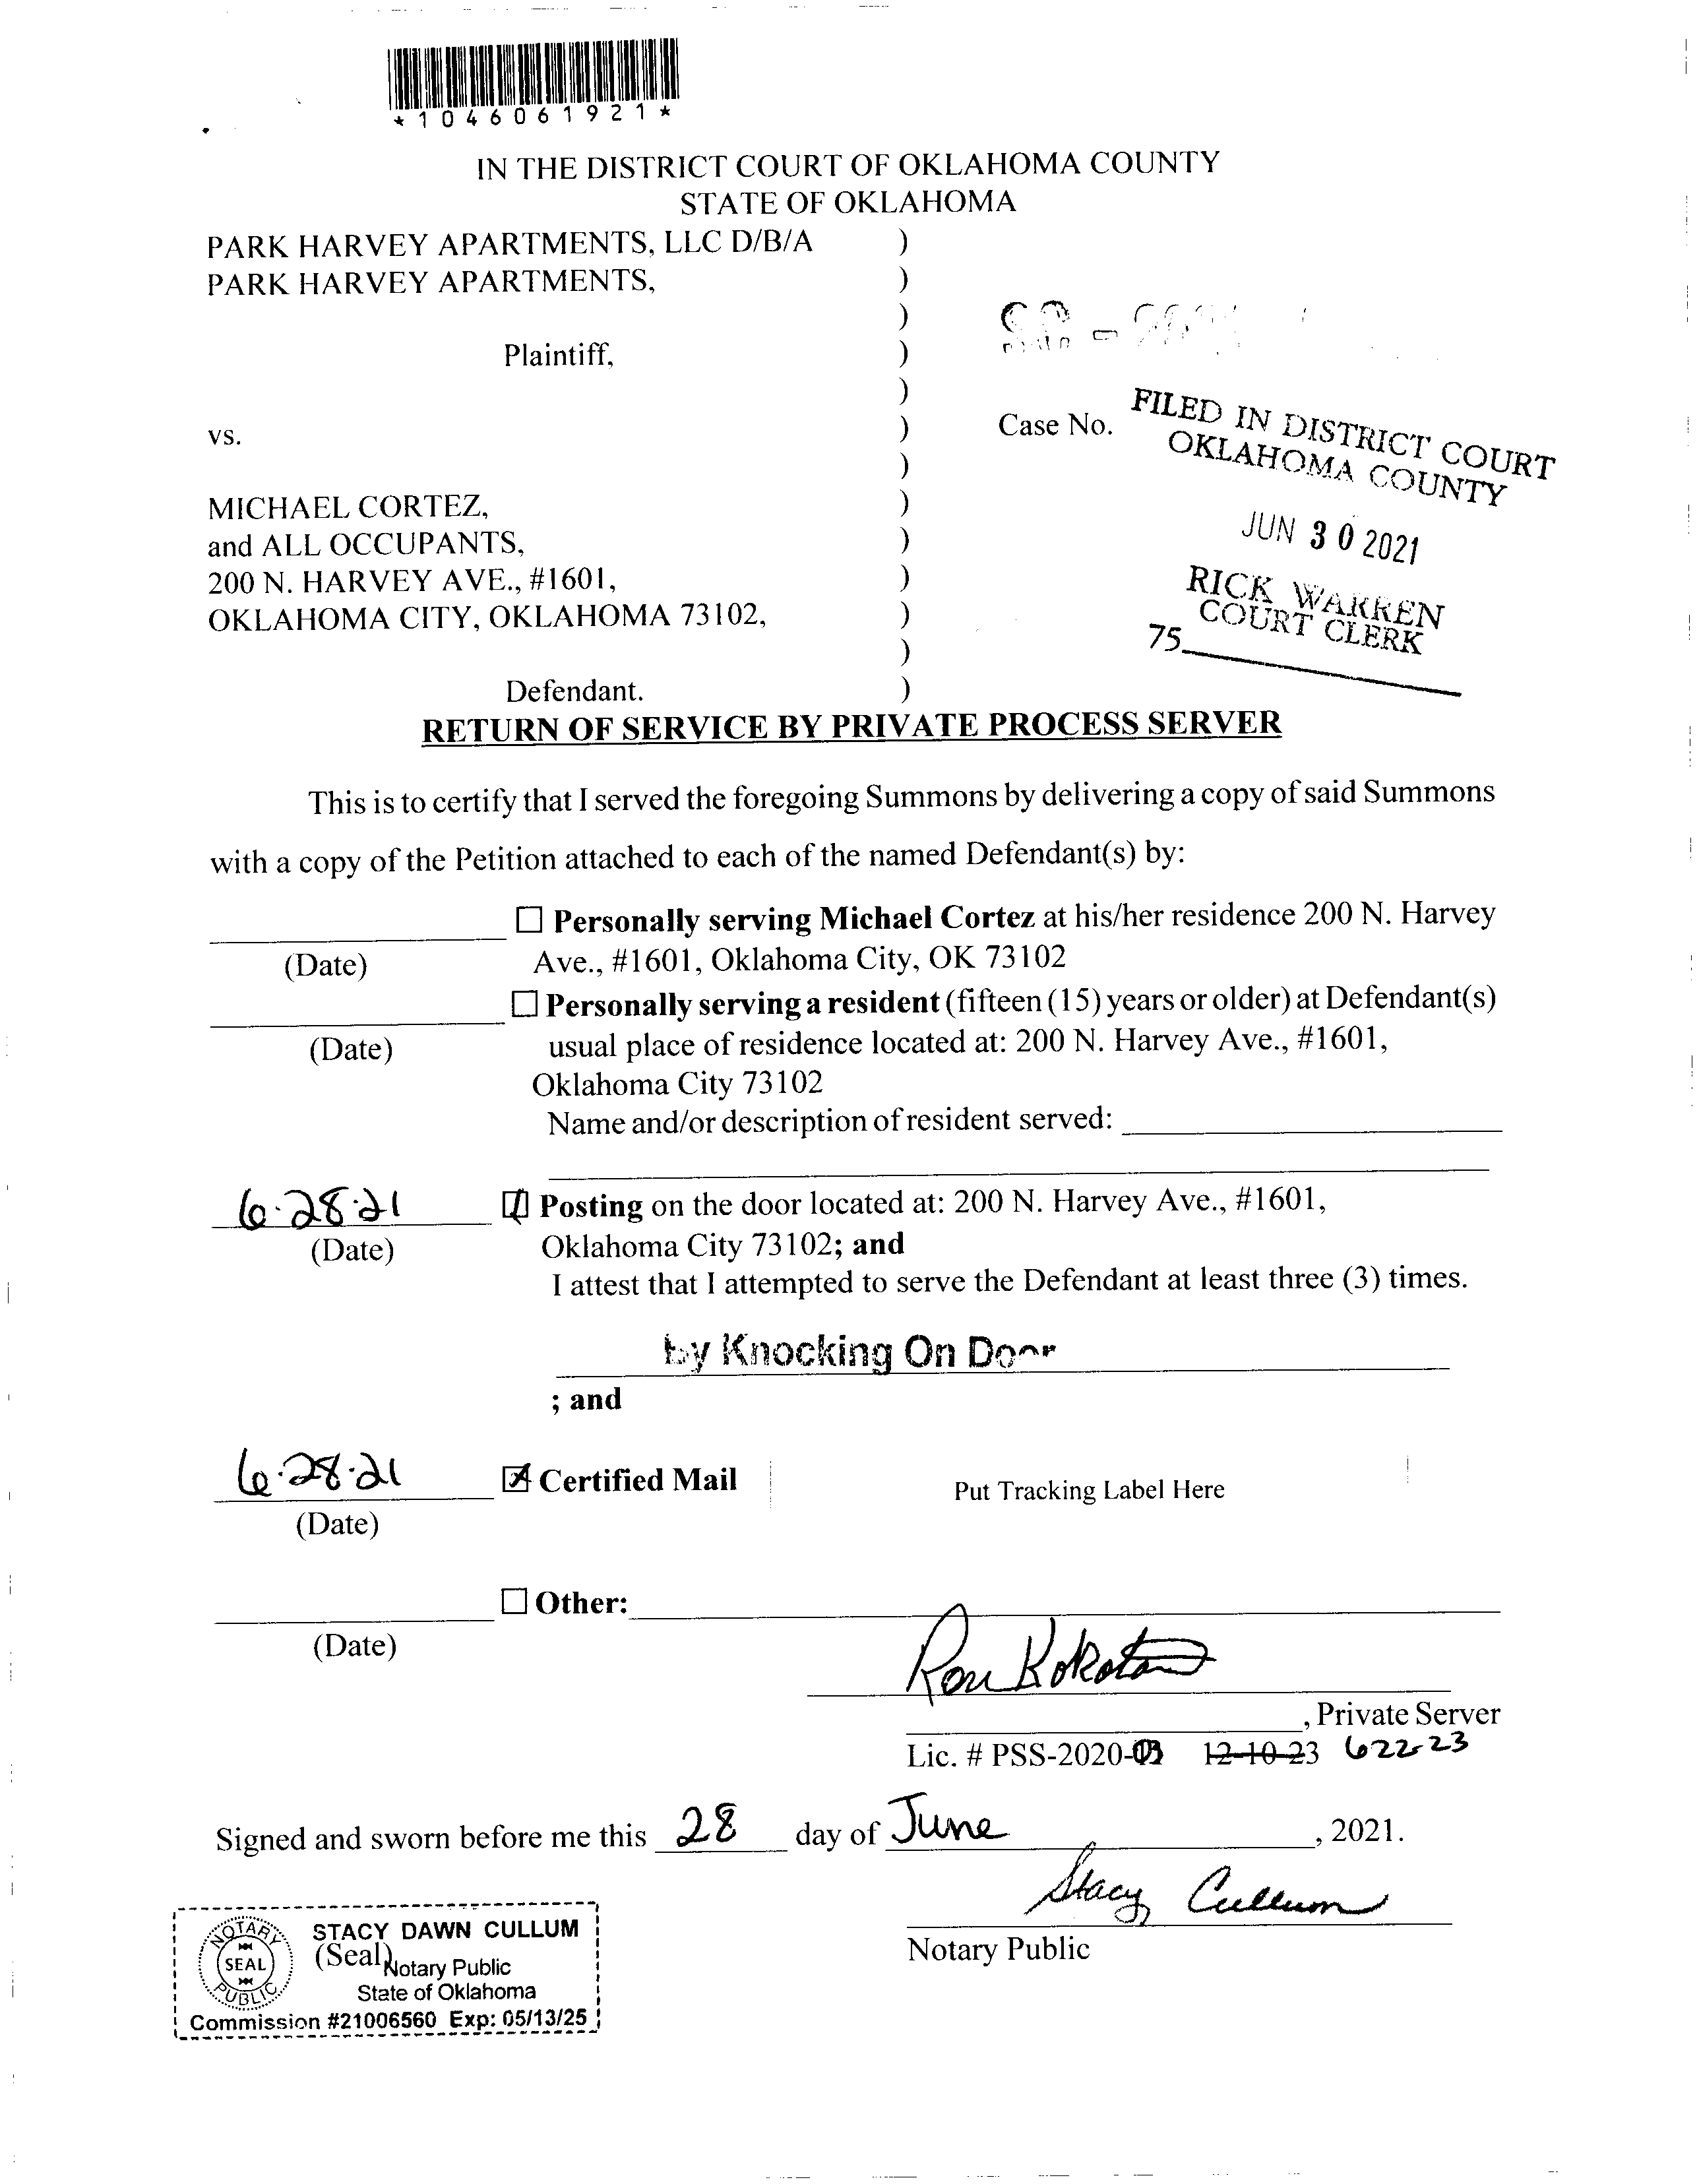 *1046061921*
IN THE DISTRICT COURT OF OKLAHOMA COUNTY
STATE OF OKLAHOMA
PARK HARVEY APARTMENTS, LLC D/B/A )
PARK HARVEY APARTMENTS, )
)
Plaintiff, )
)
vs. ) Case No.
)
MICHAEL CORTEZ, )
and ALL OCCUPANTS, )
200 N. HARVEY AVE., #1601, )
OKLAHOMA CITY, OKLAHOMA 73102, )
)
Defendant. )
FILED IN DISTRICT COURT
OKLAHOMA COUNTY
JUN 30 2021
RICK WARREN
COURT CLERK
75
RETURN OF SERVICE BY PRIVATE PROCESS SERVER
This is to certify that I served the foregoing Summons by delivering a copy of said Summons
with a copy of the Petition attached to each of the named Defendant(s) by:
☐ Personally serving Michael Cortez at his/her residence 200 N. Harvey
(Date) Ave., #1601, Oklahoma City, OK 73102
☐ Personally serving a resident (fifteen (15) years or older) at Defendant(s)
(Date) usual place of residence located at: 200 N. Harvey Ave., #1601,
Oklahoma City 73102
Name and/or description of resident served:
6·28·21 ☑ Posting on the door located at: 200 N. Harvey Ave., #1601,
(Date) Oklahoma City 73102; and
I attest that I attempted to serve the Defendant at least three (3) times.
by Knocking On Door
; and
6·28·21 ☒ Certified Mail Put Tracking Label Here
(Date)
☐ Other:
(Date)
, Private Server
Lic. # PSS-2020- 12-10-23 6-22-23
Signed and sworn before me this 28 day of June, 2021.
Stacy Cullum
Notary Public
NOTARY PUBLIC
SEAL
STACY DAWN CULLUM
(Seal) Notary Public
State of Oklahoma
Commission #21006560 Exp: 05/13/25